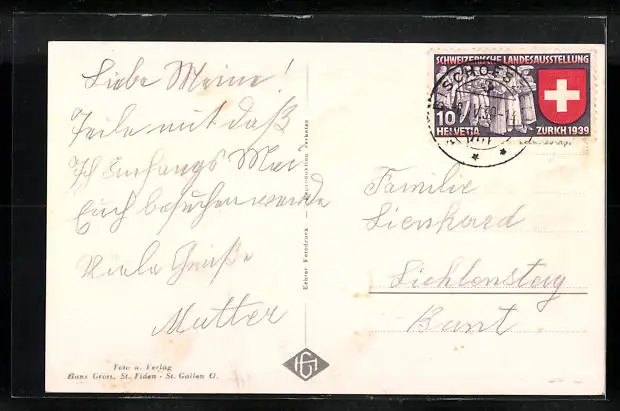 Liebe Meine!
Teile mit daß
Ich Anfangs Mai
Euch besuchen werde
Viele Grüße
Mutter
Foto u. Verlag
Hans Gross, St. Fiden - St. Gallen O.
Echter Fotodruck — Reproduktion verboten
HG
SCHWEIZERISCHE LANDESAUSSTELLUNG
10
HELVETIA ZURICH 1939
Familie
Lienhard
Lichtensteig
Bunt